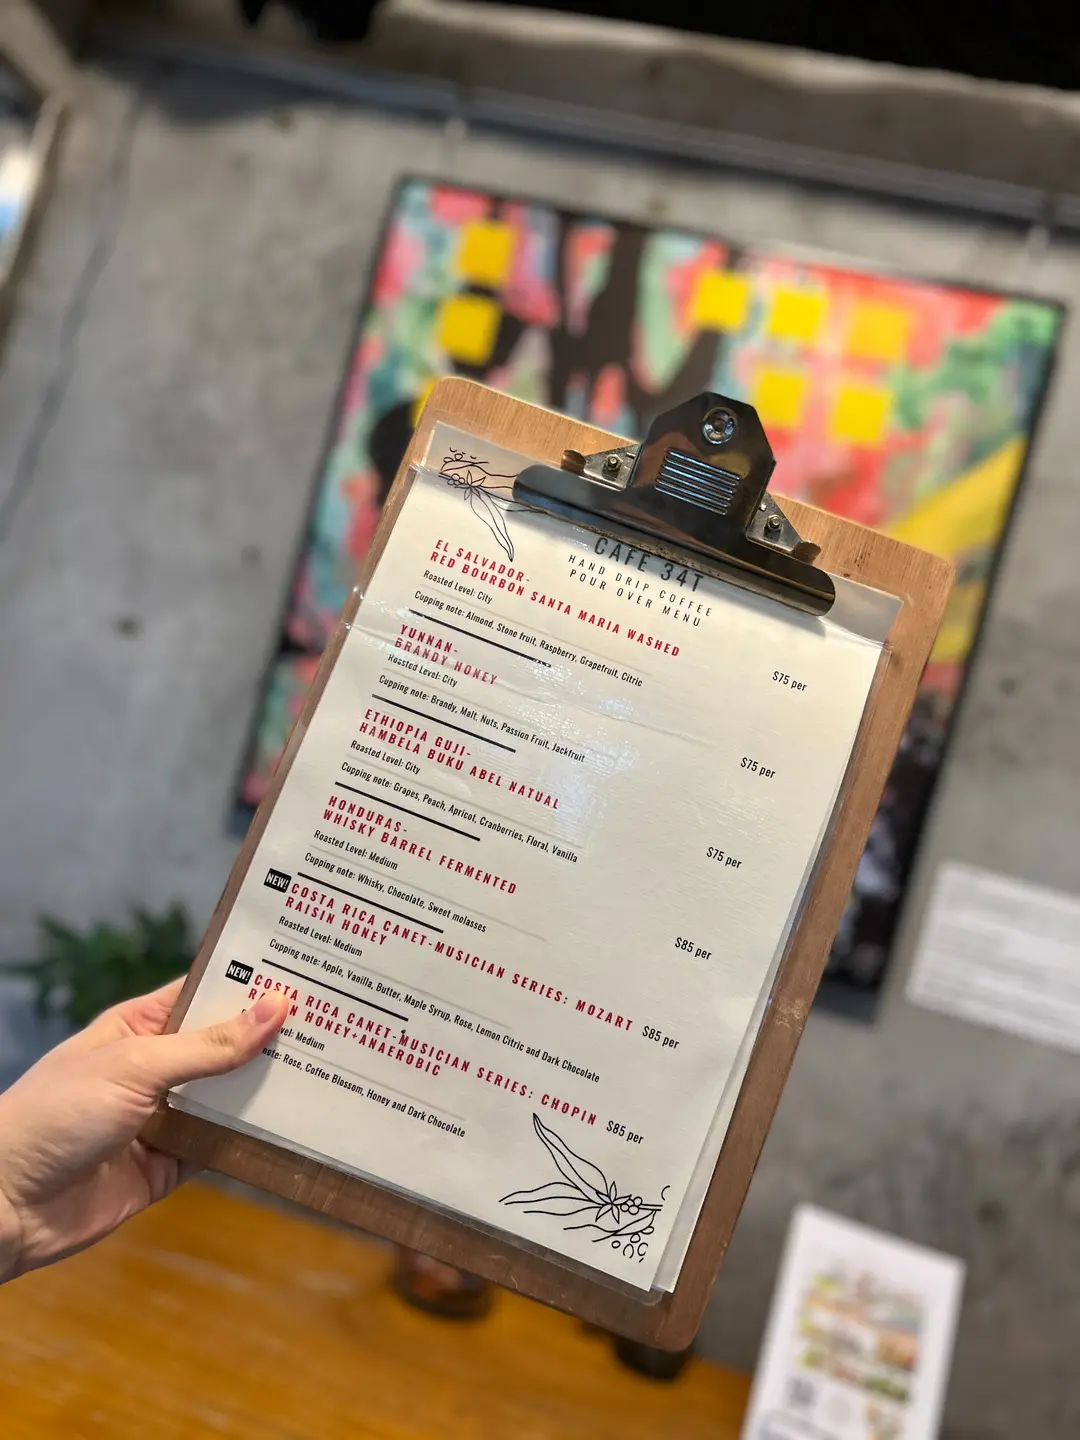 CAFE 34T
HAND DRIP COFFEE
POUR OVER MENU
EL SALVADOR-
RED BOURBON SANTA MARIA WASHED
Roasted Level: City
$75 per
Cupping note: Almond, Stone fruit, Raspberry, Grapefruit, Citric
YUNNAN-
BRANDY HONEY
Roasted Level: City
$75 per
Cupping note: Brandy, Malt, Nuts, Passion Fruit, Jackfruit
ETHIOPIA GUJI-
HAMBELA BUKU ABEL NATUAL
Roasted Level: City
$75 per
Cupping note: Grapes, Peach, Apricot, Cranberries, Floral, Vanilla
HONDURAS-
WHISKY BARREL FERMENTED
Roasted Level: Medium
$85 per
Cupping note: Whisky, Chocolate, Sweet molasses
NEW! COSTA RICA CANET-MUSICIAN SERIES: MOZART
RAISIN HONEY
$85 per
Roasted Level: Medium
Cupping note: Apple, Vanilla, Butter, Maple Syrup, Rose, Lemon Citric and Dark Chocolate
NEW! COSTA RICA CANET-MUSICIAN SERIES: CHOPIN
HONEY+ANAEROBIC
$85 per
Medium
note: Rose, Coffee Blossom, Honey and Dark Chocolate